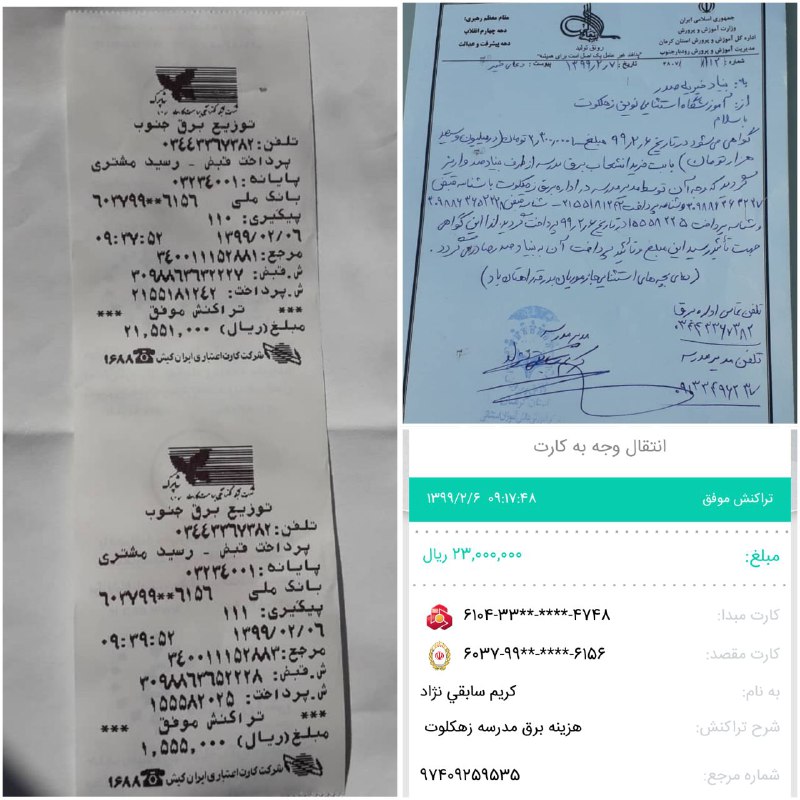 توزیع برق جنوب
تلفن:۰۳۴۴۳۳۶۷۳۸۲
پرداخت قبض - رسید مشتری
پایانه:۰۳۲۳۴۰۰۱
بانک ملی ۶۰۳۷۹۹**۶۱۵۶
پیگیری: ۱۱۰
۱۳۹۹/۰۲/۰۶ ۰۹:۳۷:۵۲
مرجع:۳۴۰۰۱۱۱۵۲۸۸۱
ش.قبض: ۳۰۹۸۸۶۳۶۳۲۲۲۷
ش.پرداخت: ۲۱۵۵۱۸۱۲۴۲
*** تراکنش موفق ***
مبلغ(ریال) ۲۱,۵۵۱,۰۰۰
شرکت کارت اعتباری ایران کیش ۱۶۸۸
توزیع برق جنوب
تلفن:۰۳۴۴۳۳۶۷۳۸۲
پرداخت قبض - رسید مشتری
پایانه:۰۳۲۳۴۰۰۱
بانک ملی ۶۰۳۷۹۹**۶۱۵۶
پیگیری: ۱۱۱
۱۳۹۹/۰۲/۰۶ ۰۹:۳۹:۵۲
مرجع:۳۴۰۰۱۱۱۵۲۸۸۳
ش.قبض: ۳۰۹۸۸۶۳۶۵۲۲۲۸
ش.پرداخت: ۱۵۵۵۸۲۰۲۵
*** تراکنش موفق ***
مبلغ(ریال) ۱,۵۵۵,۰۰۰
شرکت کارت اعتباری ایران کیش ۱۶۸۸
جمهوری اسلامی ایران
وزارت آموزش و پرورش
اداره کل آموزش و پرورش استان کرمان
مدیریت آموزش و پرورش رودبار جنوب
مقام معظم رهبری:
دهه چهارم انقلاب
دهه پیشرفت و عدالت
رونق تولید
تاریخ: ۱۳۹۹/۲/۷ پیوست:
به: بنیاد خیریه صدر
از: آموزشگاه استثنایی نوین زهکلوت
با سلام
گواهی می شود در تاریخ ۹۹/۲/۶ مبلغ ۲/۳۰۰/۰۰۰ تومان (دو میلیون و سیصد
هزار تومان) بابت خرید انشعاب برق مدرسه از طرف بنیاد صدر واریز
گردید که وجه آن توسط مدیر مدرسه در اداره برق زهکلوت با شناسه قبض
و شناسه پرداخت ۲۱۵۵۱۸۱۲۴۲ - شناسه قبض
و شناسه پرداخت در تاریخ ۹۹/۲/۶ پرداخت گردید لذا این گواهی
جهت تأیید رسید این مبلغ و تأیید پرداخت آن به بنیاد صدر صادر می گردد.
تلفن تماس اداره برق
۰۳۴۴۳۳۶۷۳۸۲
تلفن مدیر مدرسه
مدیر مدرسه
انتقال وجه به کارت
تراکنش موفق ۱۳۹۹/۲/۶ ۰۹:۱۷:۴۸
مبلغ: ۲۳,۰۰۰,۰۰۰ ریال
کارت مبدا: ۶۱۰۴-۳۳**-****-۴۷۴۸
کارت مقصد: ۶۰۳۷-۹۹**-****-۶۱۵۶
به نام: کریم سابقي نژاد
شرح تراکنش: هزینه برق مدرسه زهکلوت
شماره مرجع: ۹۷۴۰۹۲۵۹۵۳۵